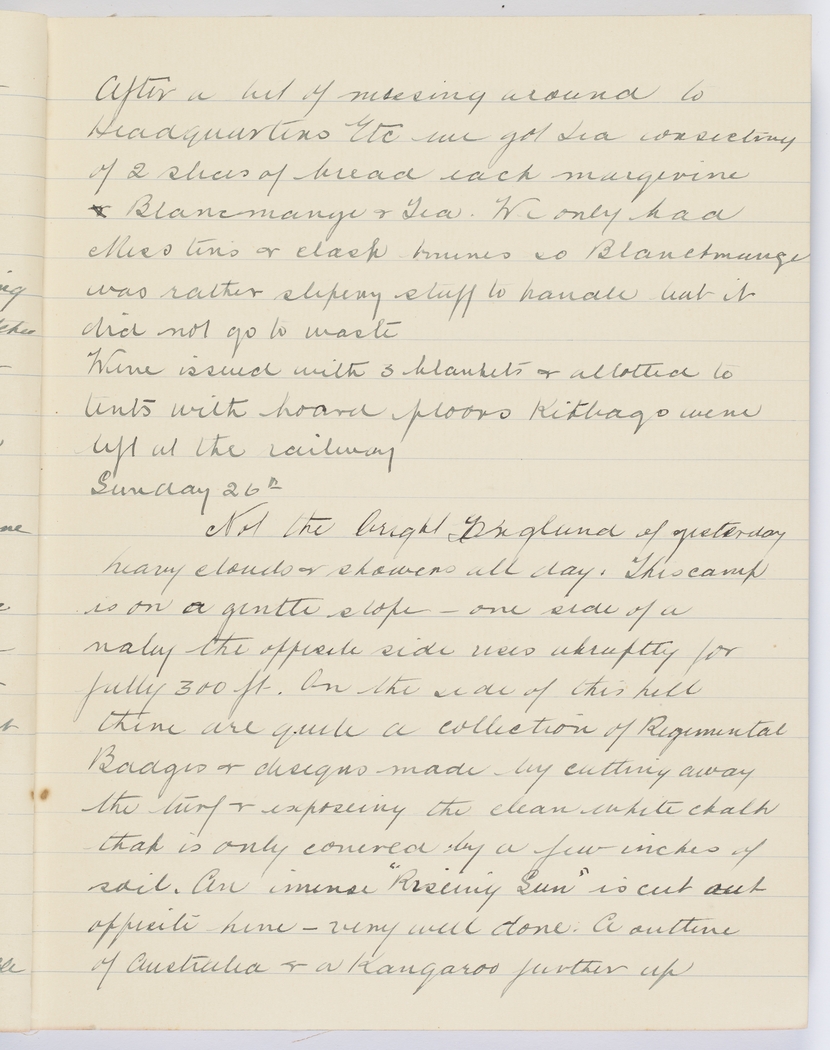 After a bit of messing around to
Headquarters Etc we got Tea consecting
of 2 slices of bread each margerine
& Blancmange & Tea. We only had
Mess tins & clasp knives so Blanctmange
was rather slipery stuff to handle but it
did not go to waste
Were issued with 3 blankets & allotted to
tents with board floors Kitbags were
left at the railway
Sunday 26th
Not the bright England of yesterday
heavy clouds & showers all day. This camp
is on a gentle slope – one side of a
valey the opposite side rises abruptly for
fully 300 ft. On the side of this hill
there are quite a collection of Regimental
Badges & designs made by cutting away
the turf & exposeing the clean white chalk
that is only covered by a few inches of
soil. An imense "Riseing Sun" is cut out
opposite here – very well done. A outline
of Australia & a Kangaroo further up